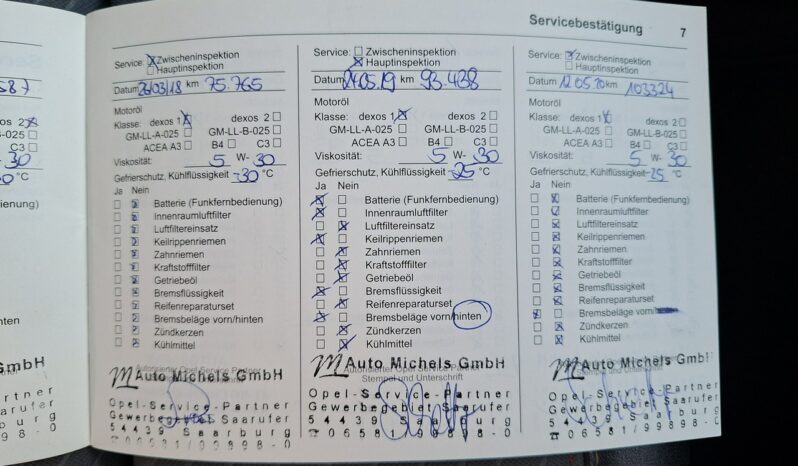 Servicebestätigung 7
587
dexos 2
B-025
C3
30
°C
enung)
inten
Service: Zwischeninspektion
Hauptinspektion
Datum 26/03/18 km 75.765
Motoröl
Klasse: dexos 1 dexos 2
GM-LL-A-025 GM-LL-B-025
ACEA A3 B4 C3
Viskosität: 5 W- 30
Gefrierschutz, Kühlflüssigkeit -30 °C
Ja Nein
Batterie (Funkfernbedienung)
Innenraumluftfilter
Luftfiltereinsatz
Keilrippenriemen
Zahnriemen
Kraftstofffilter
Getriebeöl
Bremsflüssigkeit
Reifenreparaturset
Bremsbeläge vorn/hinten
Zündkerzen
Kühlmittel
Autorisierter Opel Service Partner
Auto Michels GmbH
Opel-Service-Partner
Gewerbegebiet Saarufer
54439 Saarburg
☎ 06581/99898-0
Service: Zwischeninspektion
Hauptinspektion
Datum 24.05.19 km 93.438
Motoröl
Klasse: dexos 1 dexos 2
GM-LL-A-025 GM-LL-B-025
ACEA A3 B4 C3
Viskosität: 5 W- 30
Gefrierschutz, Kühlflüssigkeit -25 °C
Ja Nein
Batterie (Funkfernbedienung)
Innenraumluftfilter
Luftfiltereinsatz
Keilrippenriemen
Zahnriemen
Kraftstofffilter
Getriebeöl
Bremsflüssigkeit
Reifenreparaturset
Bremsbeläge vorn/hinten
Zündkerzen
Kühlmittel
Auto Michels GmbH
Autorisierter Opel Service Partner
Stempel und Unterschrift
Opel-Service-Partner
Gewerbegebiet Saarufer
54439 Saarburg
☎ 06581/99898-0
Service: Zwischeninspektion
Hauptinspektion
Datum 12.05.20 km 103324
Motoröl
Klasse: dexos 1 dexos 2
GM-LL-A-025 GM-LL-B-025
ACEA A3 B4 C3
Viskosität: 5 W- 30
Gefrierschutz, Kühlflüssigkeit -25 °C
Ja Nein
Batterie (Funkfernbedienung)
Innenraumluftfilter
Luftfiltereinsatz
Keilrippenriemen
Zahnriemen
Kraftstofffilter
Getriebeöl
Bremsflüssigkeit
Reifenreparaturset
Bremsbeläge vorn/
Zündkerzen
Kühlmittel
Auto Michels GmbH
Stempel und Unterschrift
Opel-Service-Partner
Gewerbegebiet Saarufer
54439 Saarburg
☎ 06581/99898-0